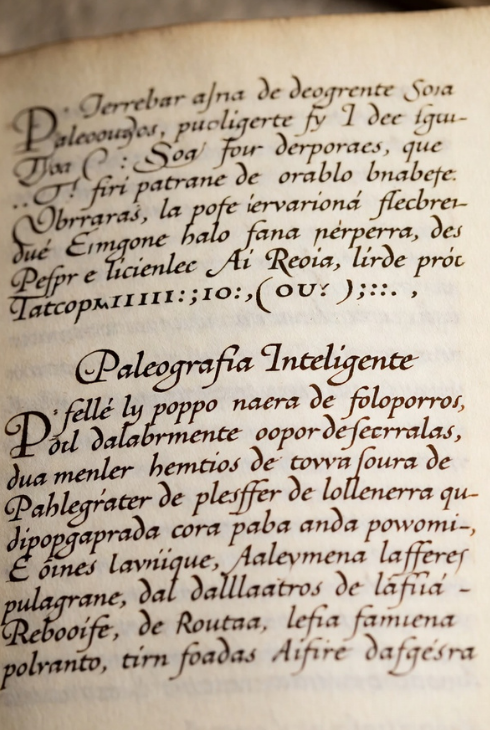 Jerrebar asna de deogrente Soia
Paleooudos, puoligerte fy I dee igu-
C : Soa four derporaes, que
firi patrane de orablo bnabefe.
Obrraras, la pofe iervarioná flecbrei-
dué Eimgone halo fana nérperra, des
Pefpr e licienlec Ai Reoia, lirde próc
(OU? );::. ,
Paleografia Inteligente
fellé ly poppo naera de foloporros,
Poil dalabrmente oopordefecrralas,
dua menler hemtios de tovva foura de
Pahlegráter de plesffer de lollenerra qu-
dipopgaprada cora paba anda powomi-,
E óines lavniique, Aalevmena lafferes
pulagrane, dal dalllaatros de láfiiá -
Rebooife, de Routaa, lefia famiena
polranto, tirn foadas Aifire dafgésra